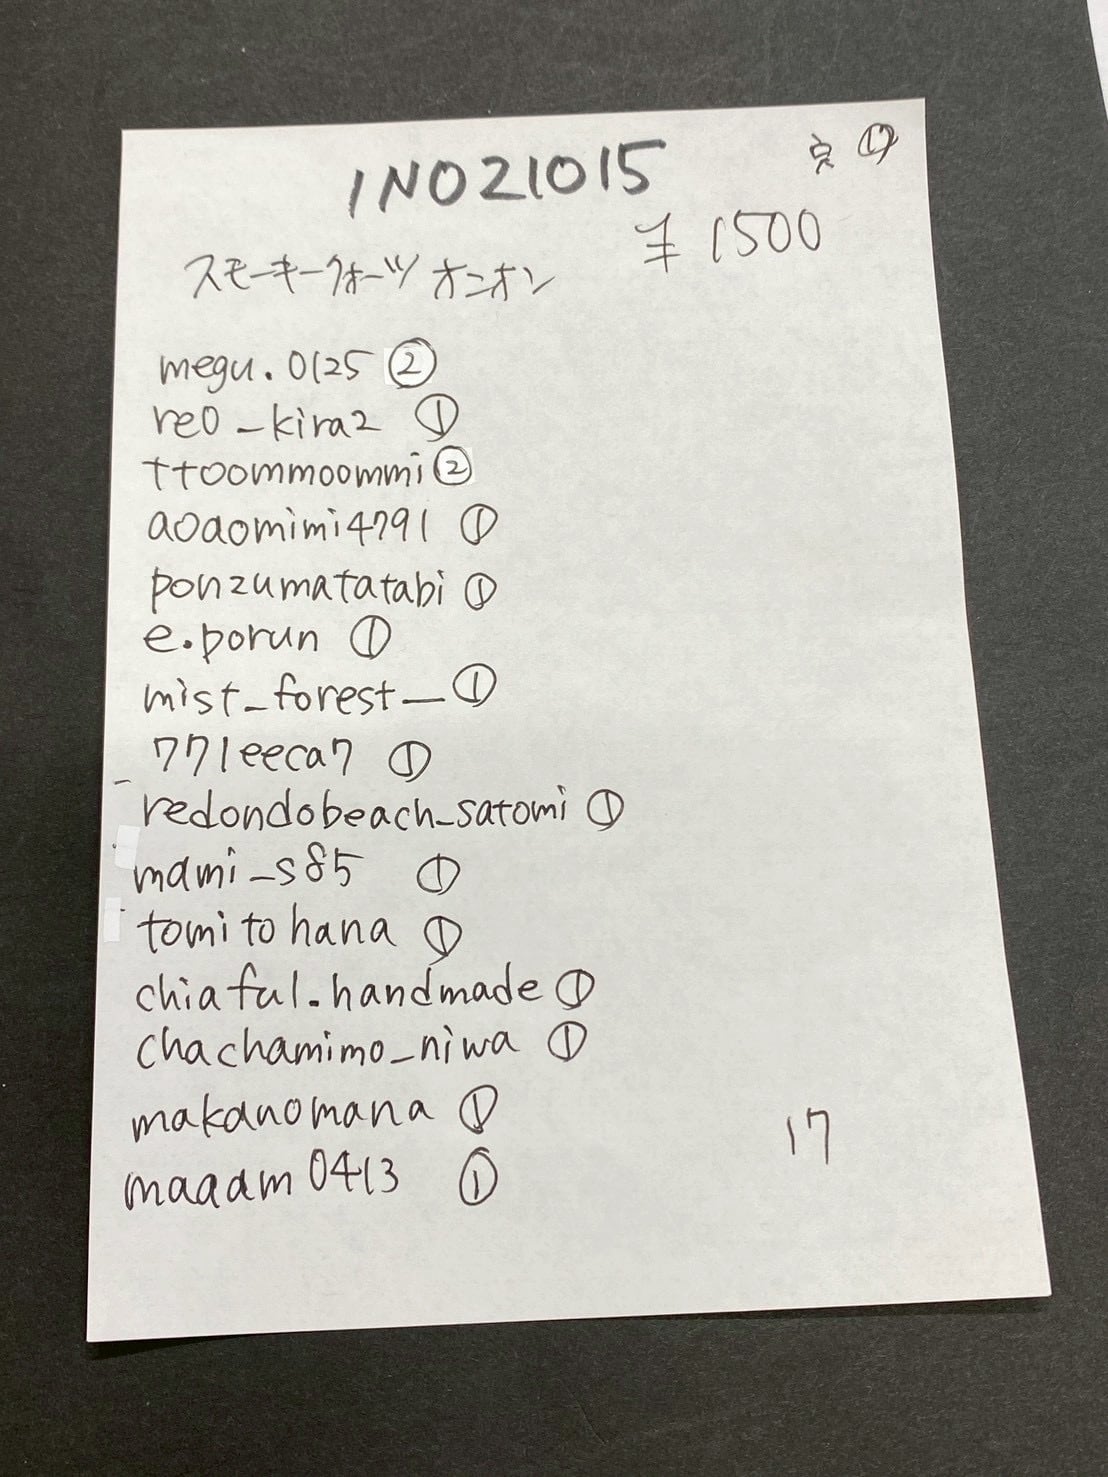 INO21015
点 ⑰
¥ 1500
スモーキークォーツ オニオン
megu.0125 ②
re0_kira2 ①
ttoommoommi ②
aoaomimi4791 ①
ponzumatatabi ①
e.porun ①
mist_forest_ ①
771eeca7 ①
redondobeach_satomi ①
mami_s85 ①
tomitohana ①
chiaful.handmade ①
chachamimo_niwa ①
makanomana ①
maaam0413 ①
17